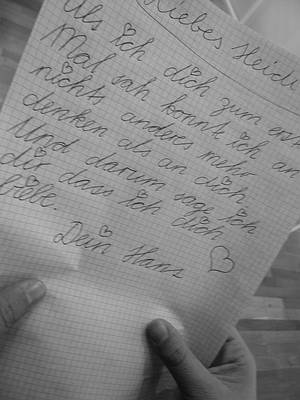 Liebes Heidi
Als ich dich zum erst
Mal sah konnt ich an
nichts anderes mehr
denken als an dich
Und darum sage ich
dir dass ich dich
liebe.
Dein Hans